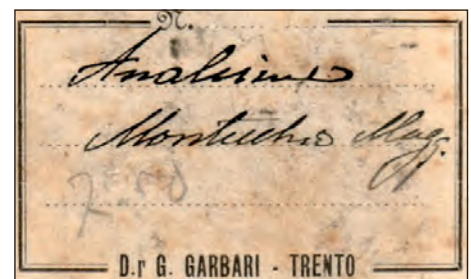 N.
Analcime
Montecchio Magg.
D.r G. GARBARI - TRENTO